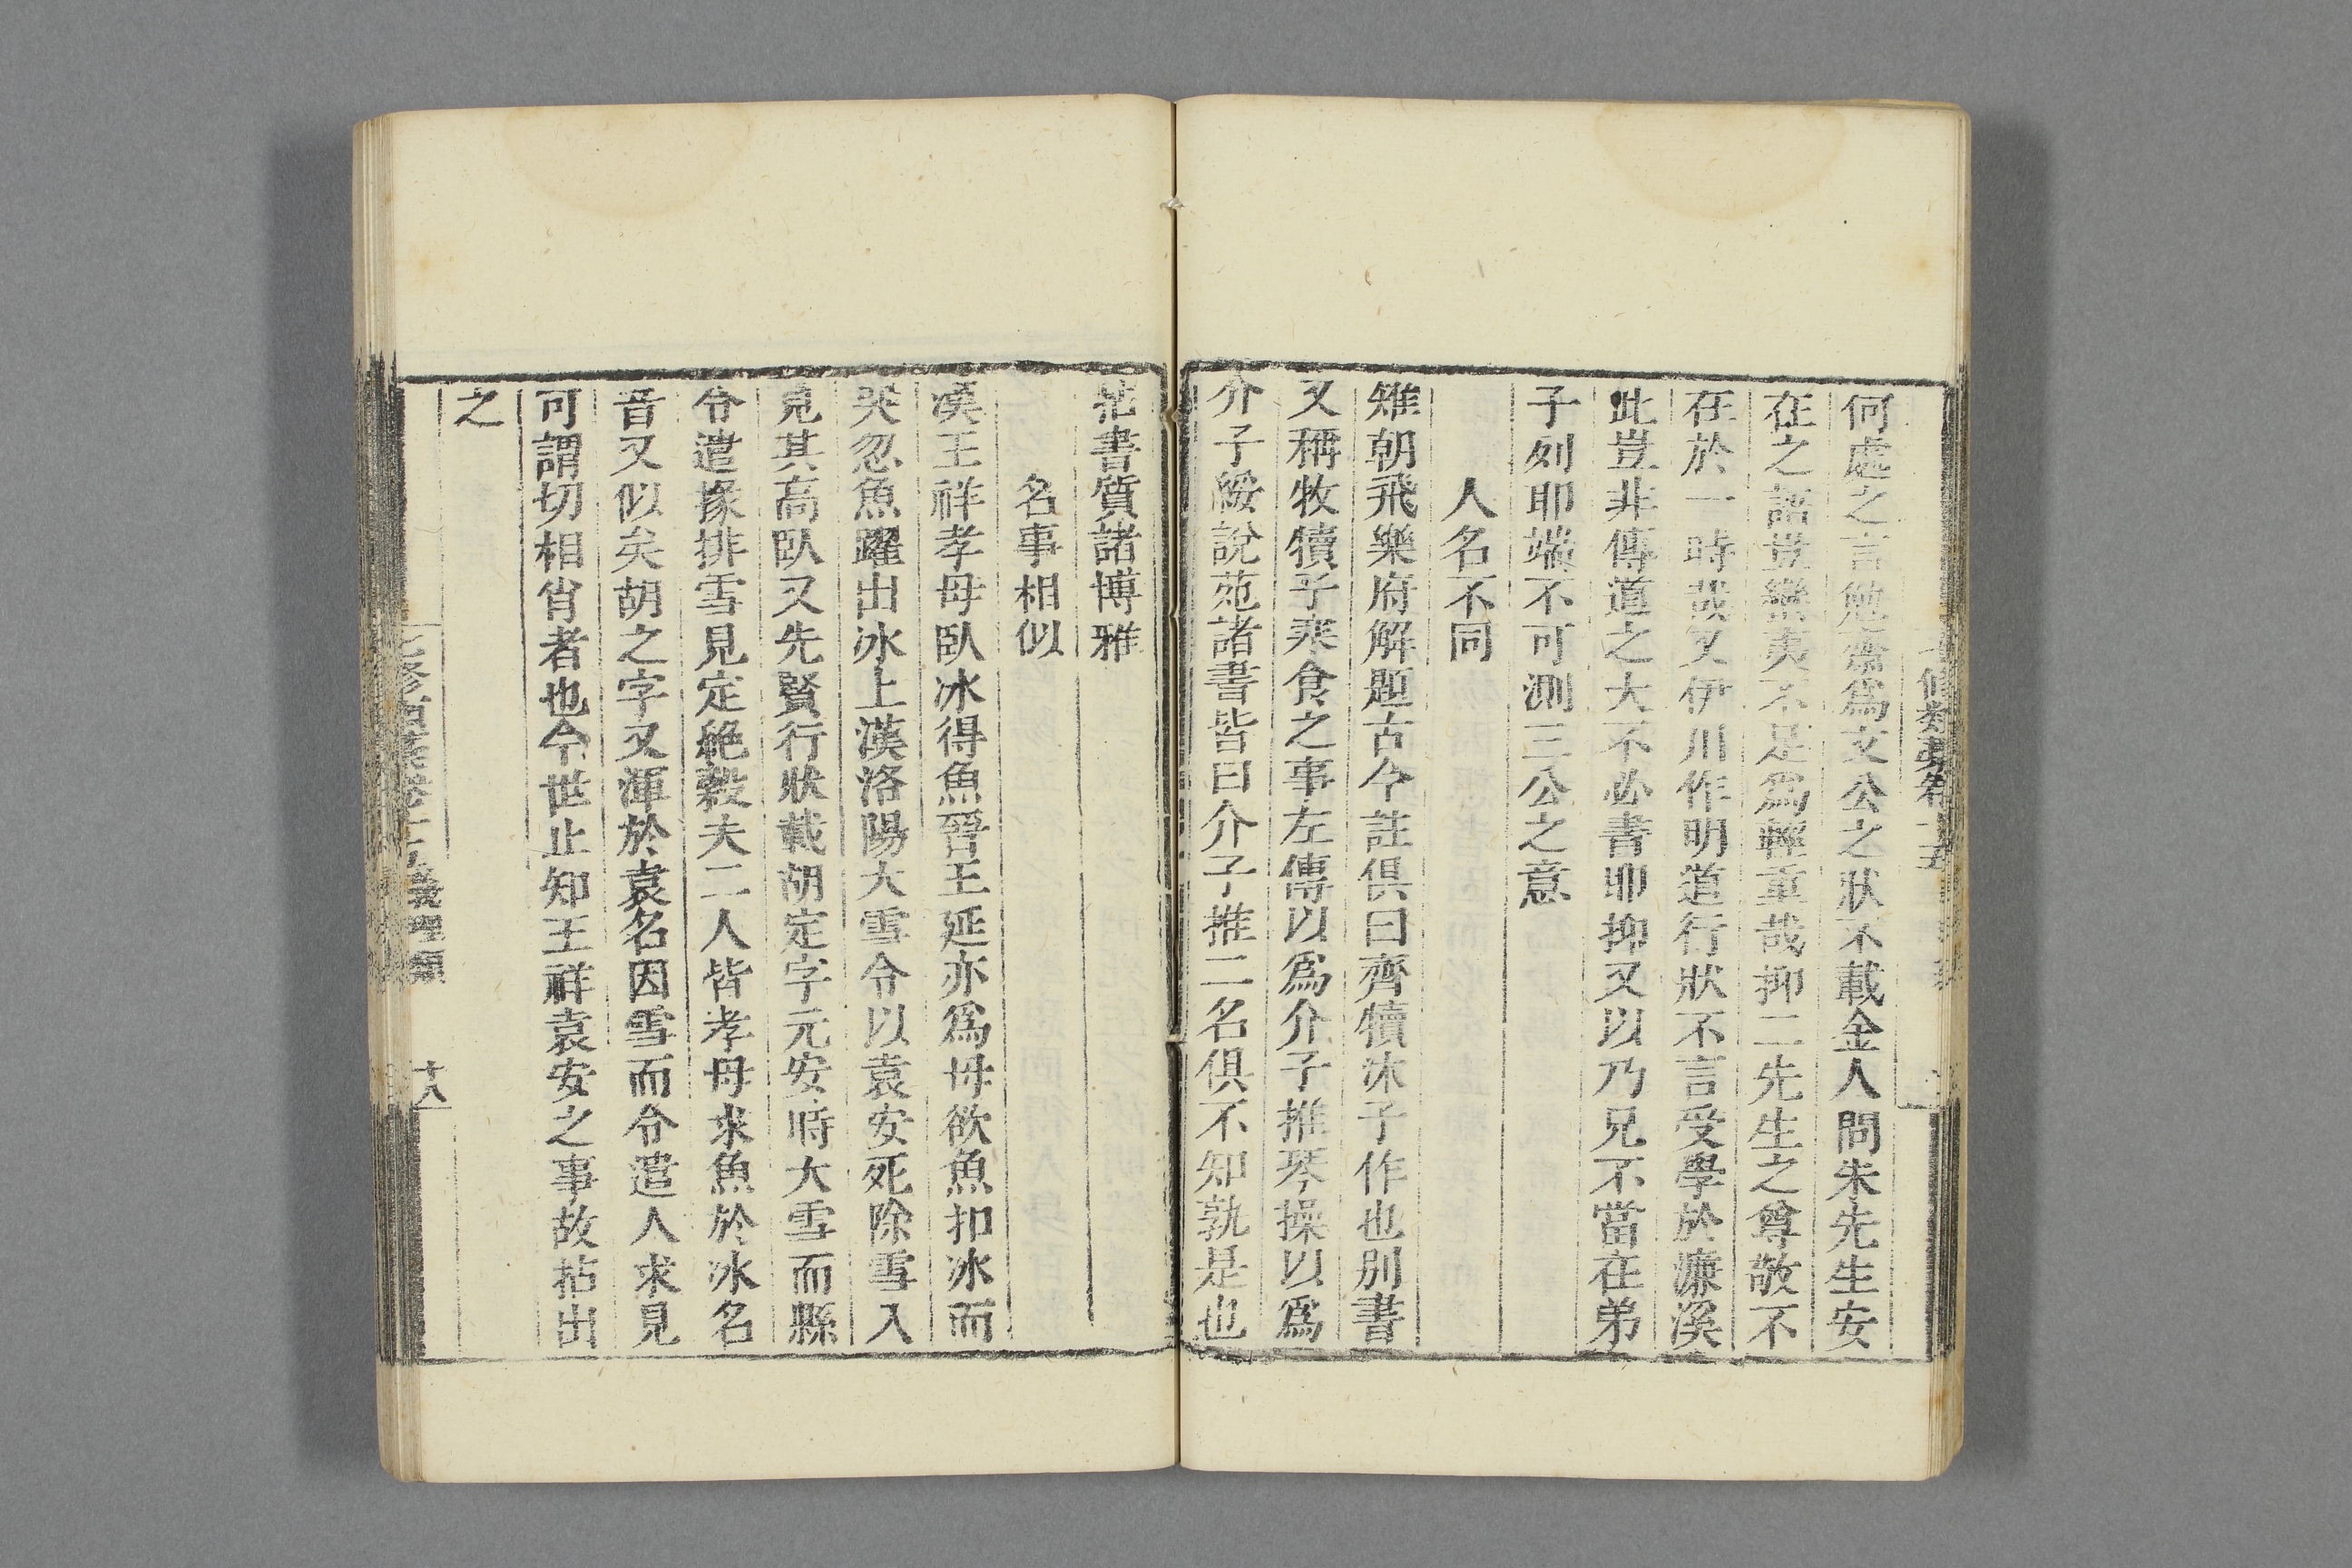 何處之言勉齋爲文公之狀不載金人問朱先生安
在之語豈蠻夷不足爲輕重哉抑二先生之尊敬不
在於一時哉又伊川作明道行狀不言受學於濂溪
此豈非傳道之大不必書耶抑又以乃兄不當在弟
子列耶端不可測三公之意
人名不同
雉朝飛樂府解題古今註俱曰齊犢沐子作也別書
又稱牧犢子寒食之事左傳以爲介子推琴操以爲
介子綏說苑諸書皆曰介子推二名俱不知孰是也
書質諸博雅
名事相似
漢王祥孝母臥冰得魚晉王延亦爲母欲魚扣冰而
哭忽魚躍出冰上漢洛陽大雪令以袁安死除雪入
見其高臥又先賢行狀載胡定字元安時大雪而縣
令遣掾排雪見定絕穀夫二人皆孝母求魚於冰名
音又似矣胡之字又渾於袁名因雪而令遣人求見
可謂切相肖者也今世止知王祥袁安之事故拈出
之
義理類
十八